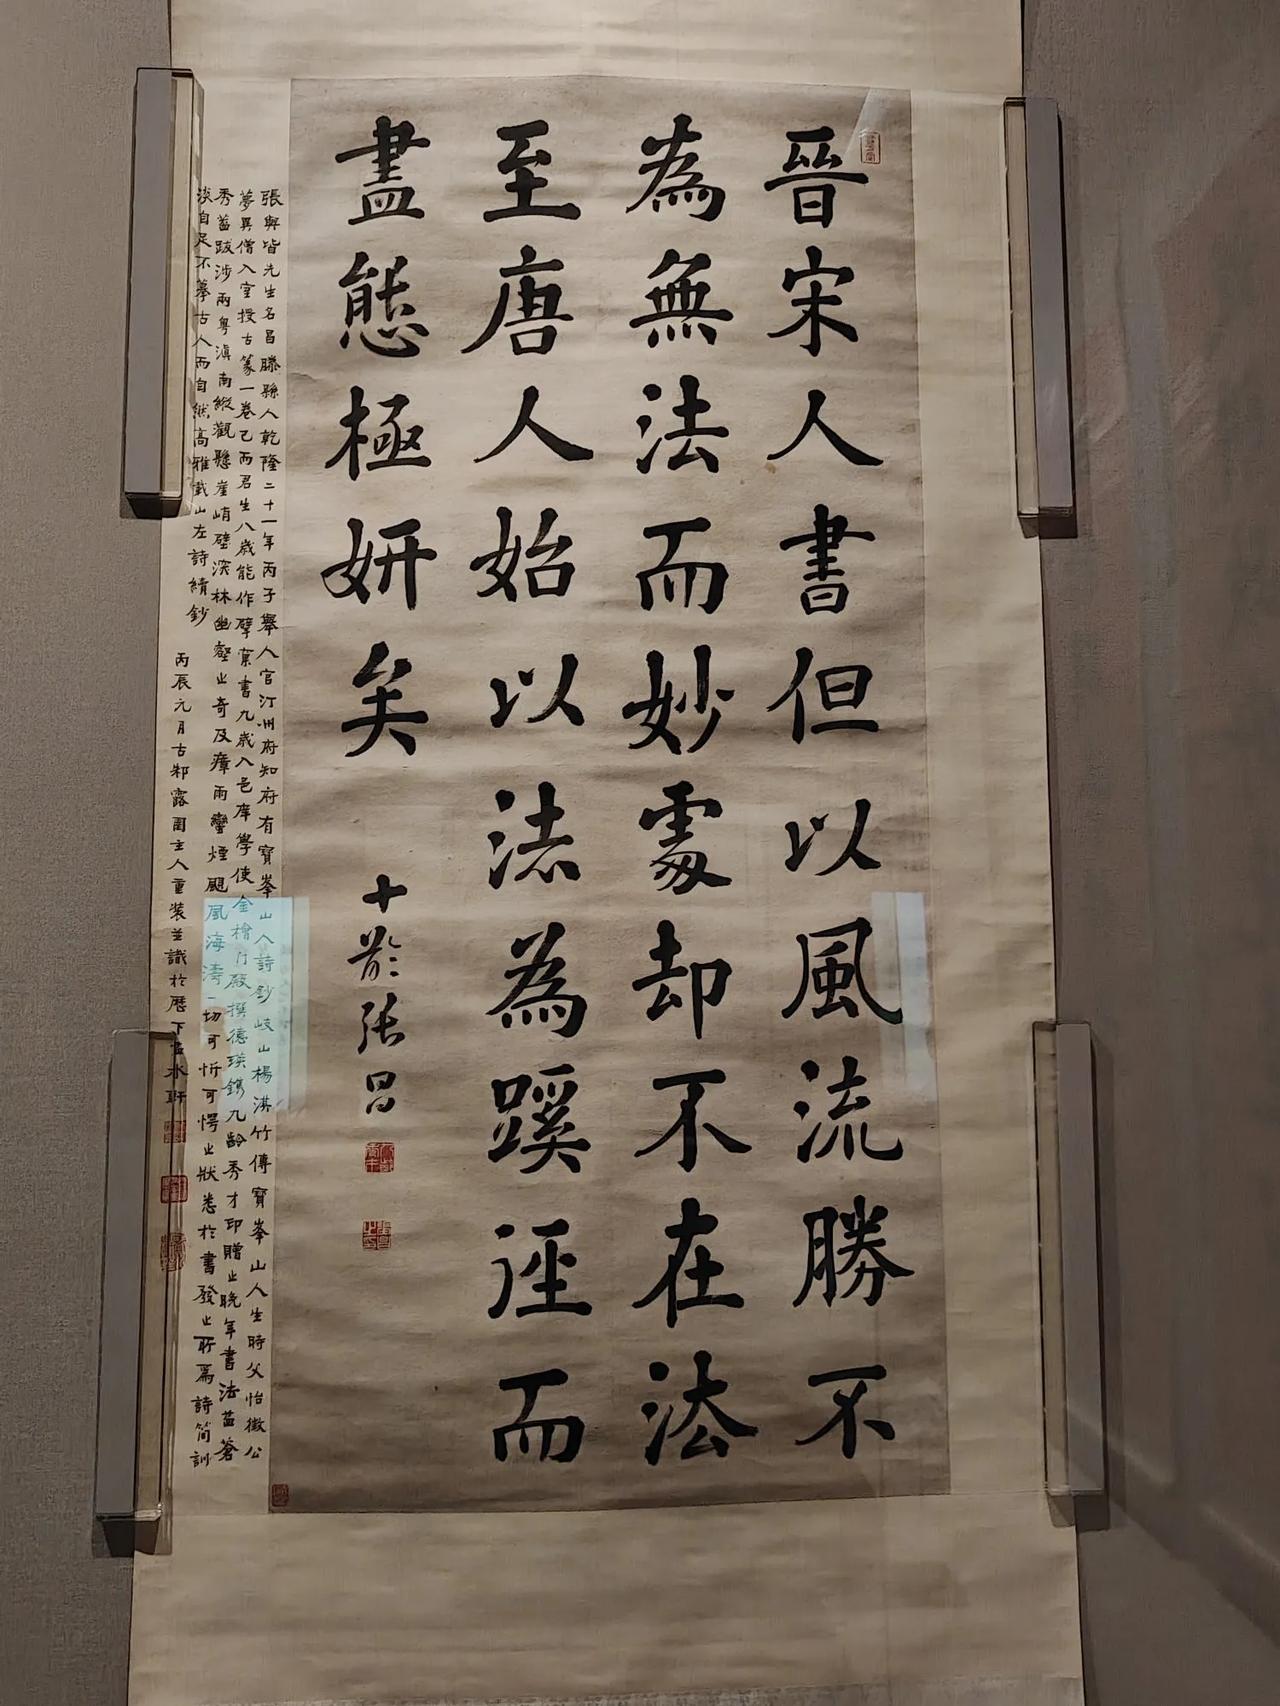 晉宋人書但以風流勝不
為無法而妙處却不在法
至唐人始以法為蹊逕而
盡態極妍矣
十於張昌
張輿皆先生名昌滕縣人乾隆二十一年丙子舉人官汀州府知府有寶峯山人詩鈔岐山楊淇竹傳寶峯山人生時父怡徵公
夢異僧入室授古篆一卷乙而君生八歲能作擘窠書九歲入邑庠學使金檜門殿撰德瑛鐫九齡秀才印贈之晚年書法益蒼
秀益跋涉兩粵滇南縱觀懸崖峭壁深林幽壑之奇及瘴雨蠻煙颶風海濤一切可忻可愕之狀悉於書發之所爲詩簡訓
淡自足不摹古人而自然高雅載山左詩續鈔
丙辰元月古邾露園主人重装並識於歷下